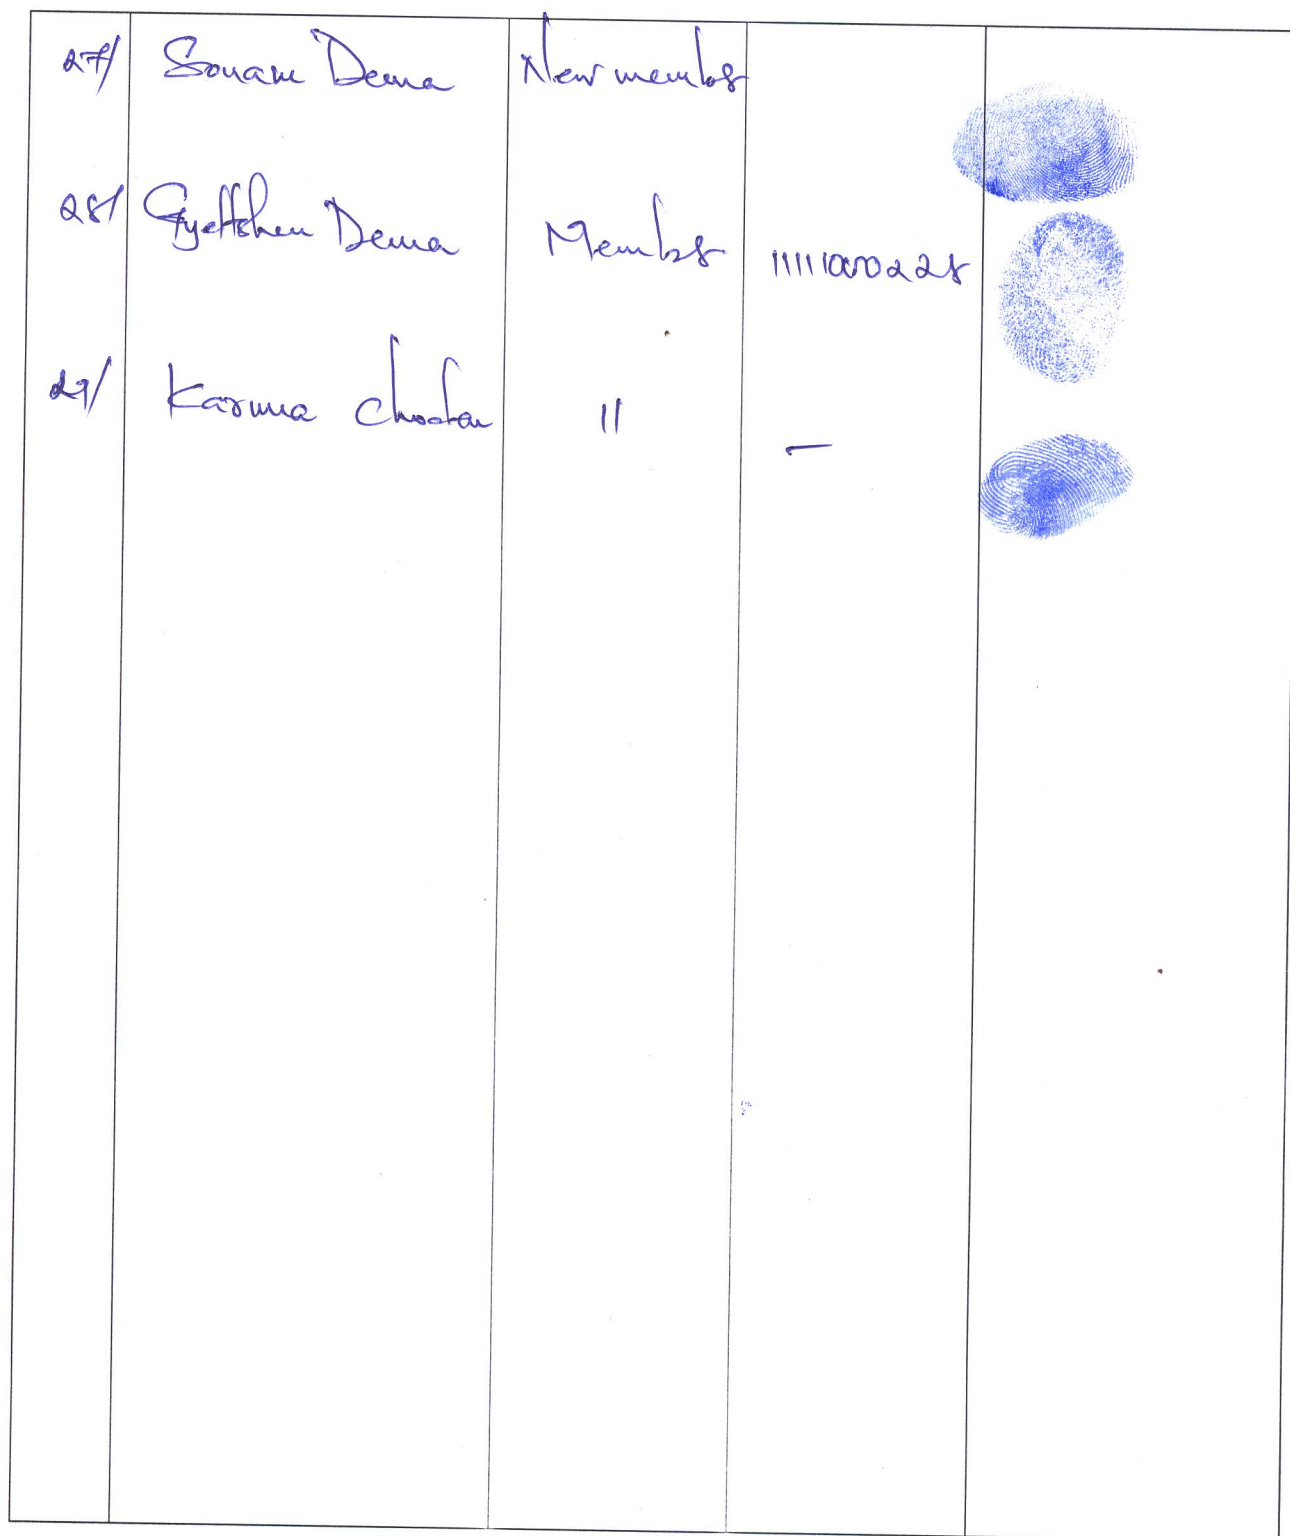 27/ Sonam Dema New member
28/ Gyeltshen Dema Member 11111000228
29/ Karma Choden 11 –